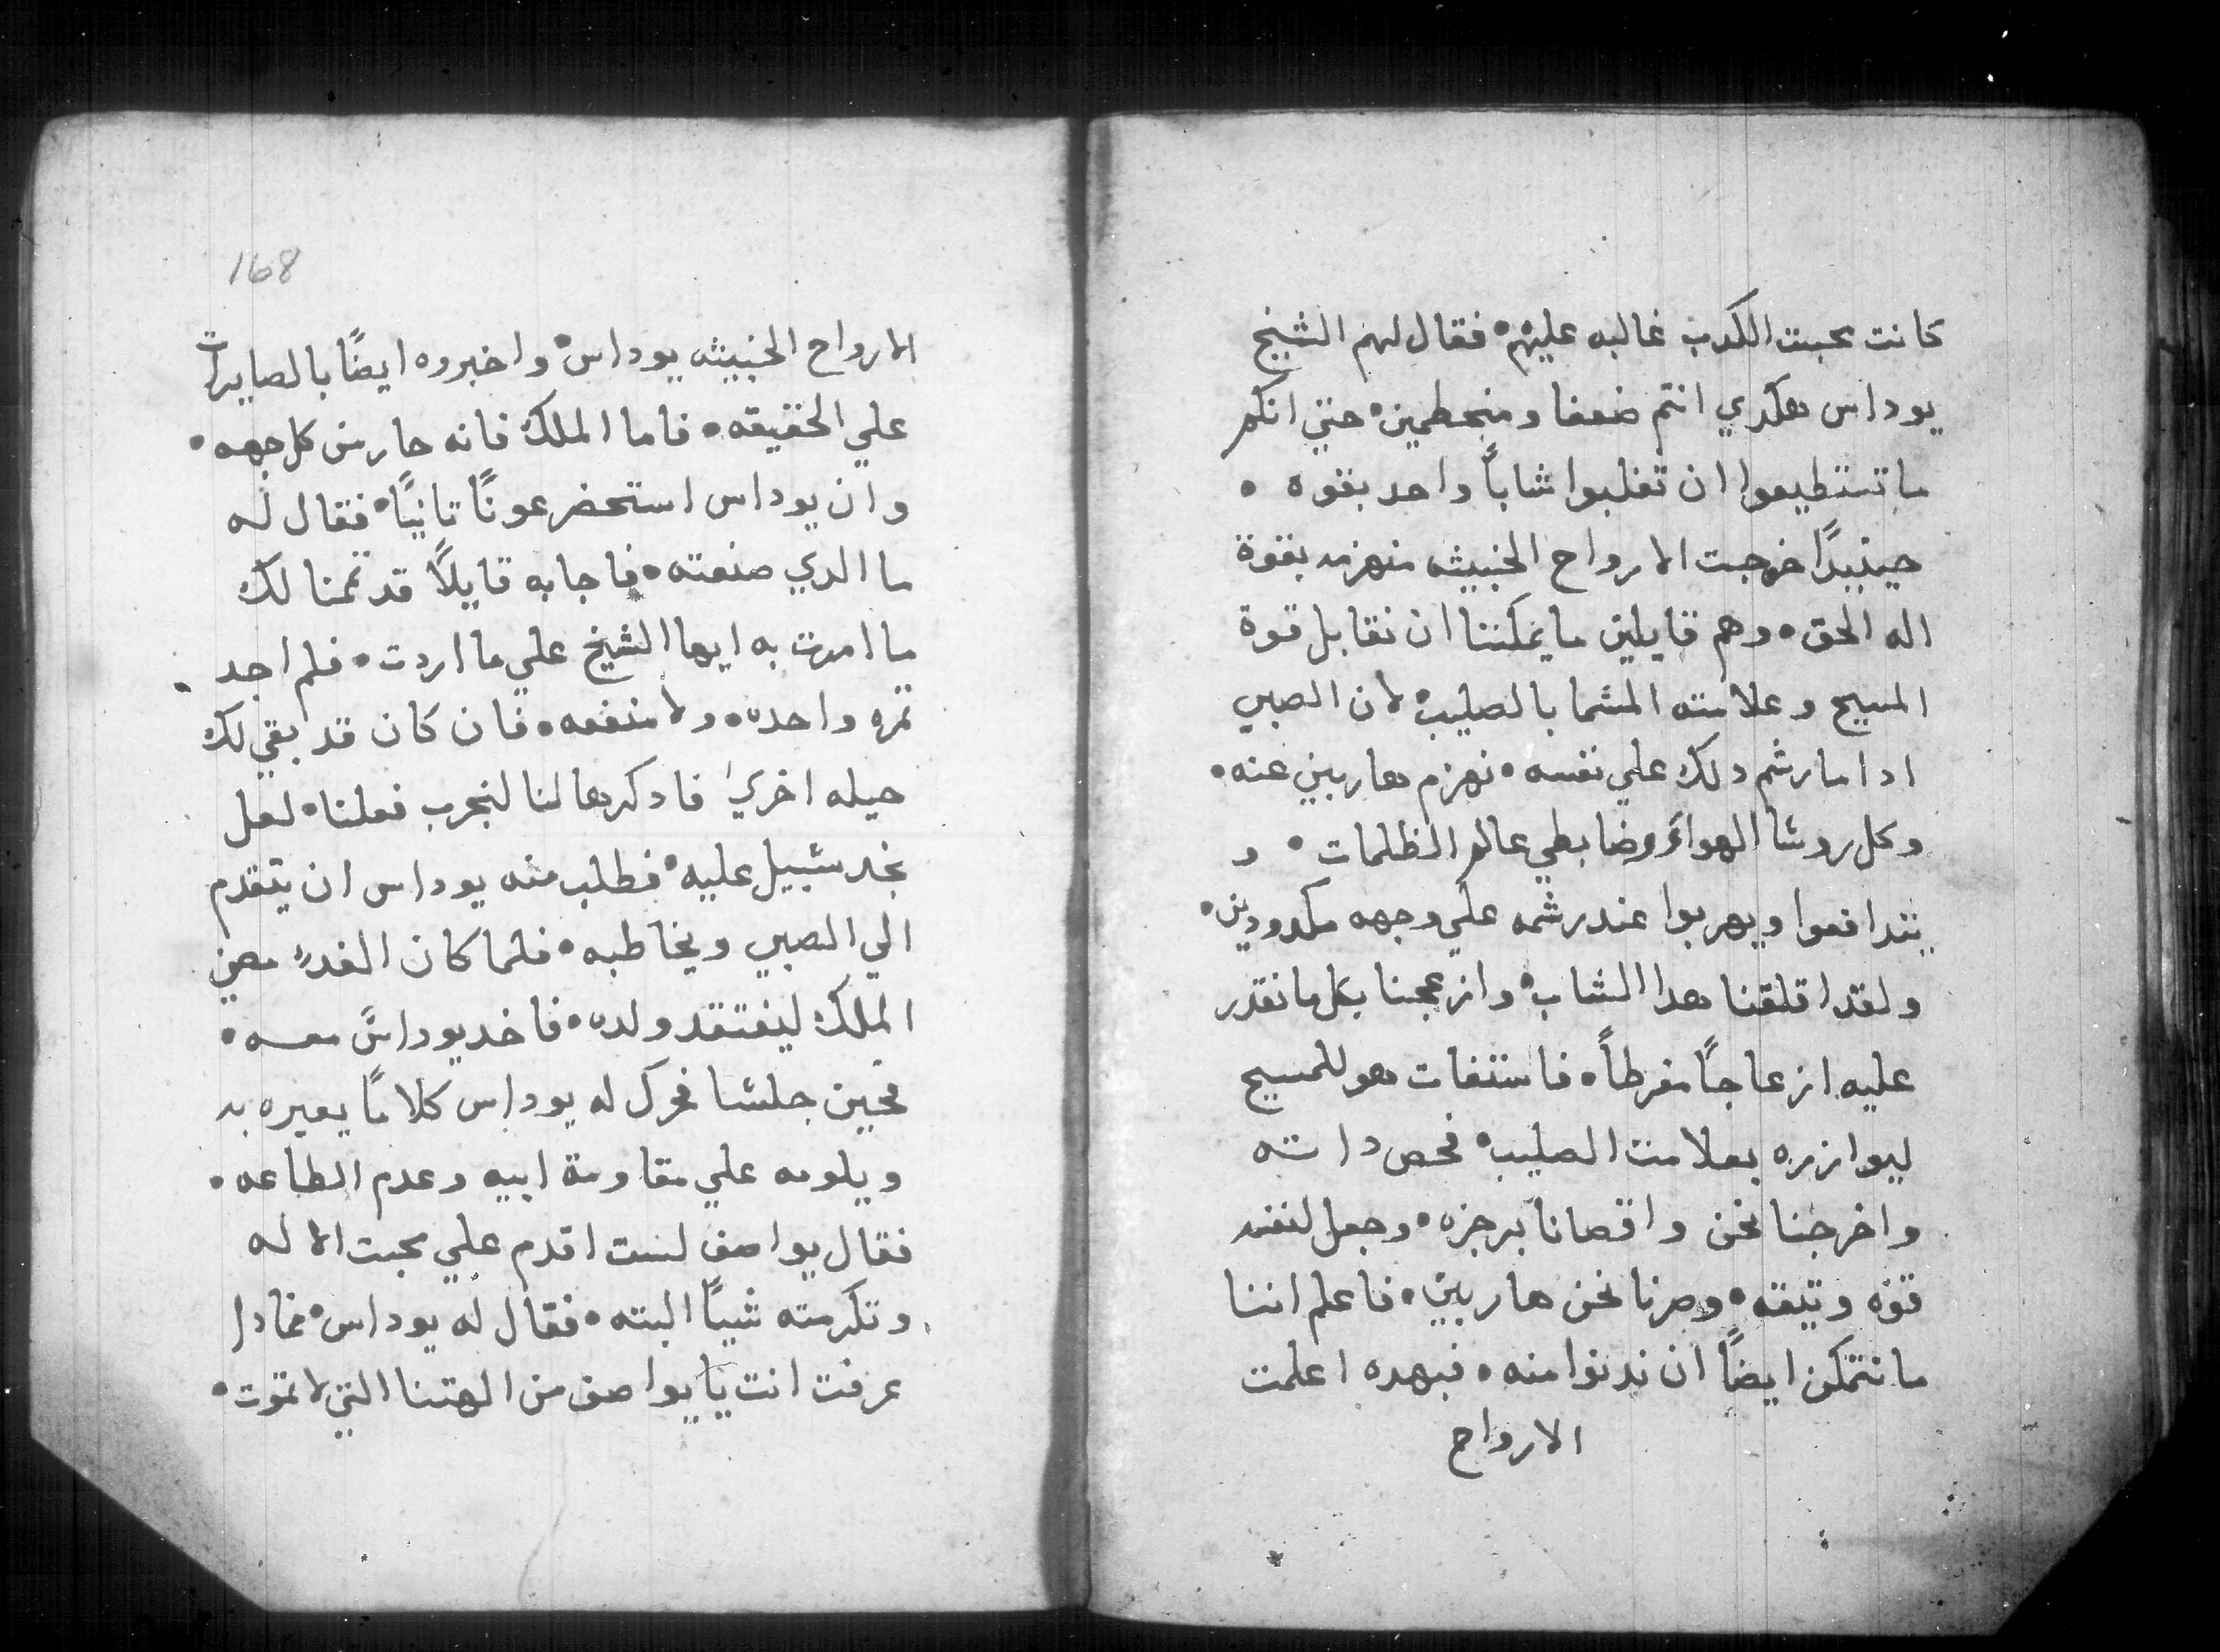 كانت محبت الكدب غالبه عليهم• فقال لهم الشيخ
يوداس هكدي انتم ضعفا ومنحطمين• حتي انكم
ما تستطيعوا ان تغلبوا شاباً واحد بقوه •
حينيدًا خرجت الارواح الخبيثه منهزمه بقوة
اله الحق• وهم قايلين ما يمكننا ان نقابل قوة
المسيح وعلامته المسما بالصليب• لان الصبي
ادا ما رشم دلك علي نفسه• نهزم هاربين عنه•
وكل روسا الهواء وضابطي عالم الظلمات• و
يتدافعوا ويهربوا عند رشمه علي وجهه مكدودين•
ولقد اقلقنا هدا الشاب• وازعجنا بكل ما نقدر
عليه ازعاجاً مفرطاً• فاستغات هو للمسيح
ليوازره بعلامت الصليب• فحص داته
واخرجنا نحن واقصانا برجزه• وجعل لنفسه
قوه وتيقه• وصرنا نحن هاربين• فاعلم اننا
ما نتمكن ايضاً ان ندنوا منه• فبهده اعلمت
الارواح
168
الارواح الخبيثه يوداس• واخبروه ايضاً بالصايرات
علي الحقيقه• فاما الملك فانه حار من كل جهه•
وان يوداس استحضر عونًا تانيًا• فقال له
ما الدي صنعته• فاجابه قايلاً قد تممنا لك
ما امرت به ايها الشيخ علي ما اردت• فلم اجد
تمره واحده• ولا منفعه• فان كان قد بقي لك
حيله اخري فادكرها لنا لنجرب فعلنا• لعل
نجد سبيل عليه• فطلب منه يوداس ان يتقدم
الي الصبي ويخاطبه• فلما كان الغد مضي
الملك ليفتقد ولده• فاخد يوداس معه•
فحين جلسا فحرك له يوداس كلاماً يعيره به
ويلومه علي مقاومة ابيه وعدم الطاعه•
فقال يواصف لست اقدم علي محبت الاله
وتكرمته شياً البته• فقال له يوداس• فمادا
عرفت انت يا يواصف من الهتنا التي لا تموت•